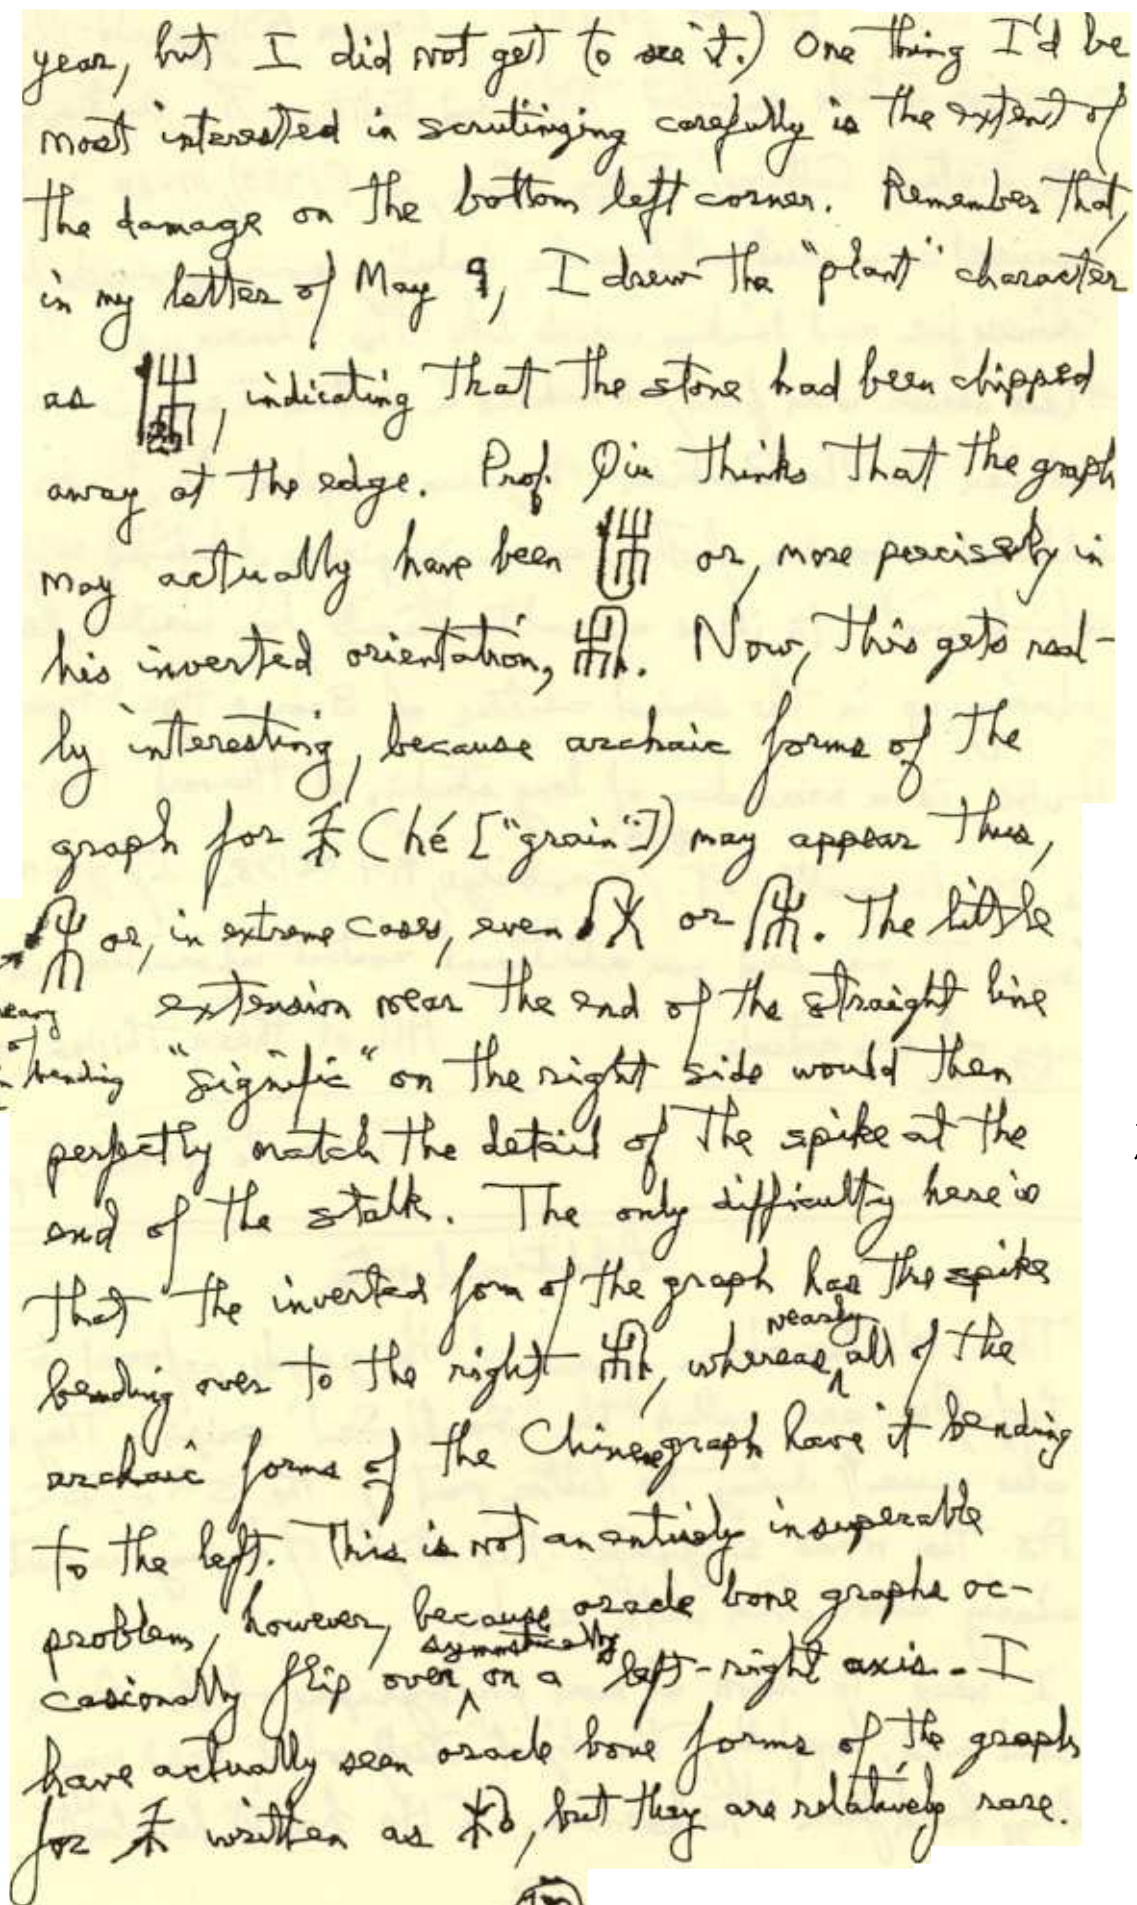 year, but I did not get to see it.) One thing I'd be
most interested in scrutinizing carefully is the extent of
the damage on the bottom left corner. Remember that,
in my letter of May 9, I drew the "plant" character
as , indicating that the stone had been chipped
away at the edge. Prof. Qiu thinks that the graph
may actually have been or, more precisely in
his inverted orientation, . Now, this gets real-
ly interesting, because archaic forms of the
graph for 禾 (hé ["grain"]) may appear thus,
or, in extreme cases, even or . The little
extension near the end of the straight line
"signific" on the right side would then
bending
perfectly match the detail of the spike at the
end of the stalk. The only difficulty here is
that the inverted form of the graph has the spike
nearly
bending over to the right , whereas ^ all of the
archaic forms of the Chinese graph have it bending
to the left. This is not an entirely insuperable
problem, however, because oracle bone graphs oc-
symmetrically
casionally flip over ^ on a left-right axis. I
have actually seen oracle bone forms of the graph
for 禾 written as , but they are relatively rare.